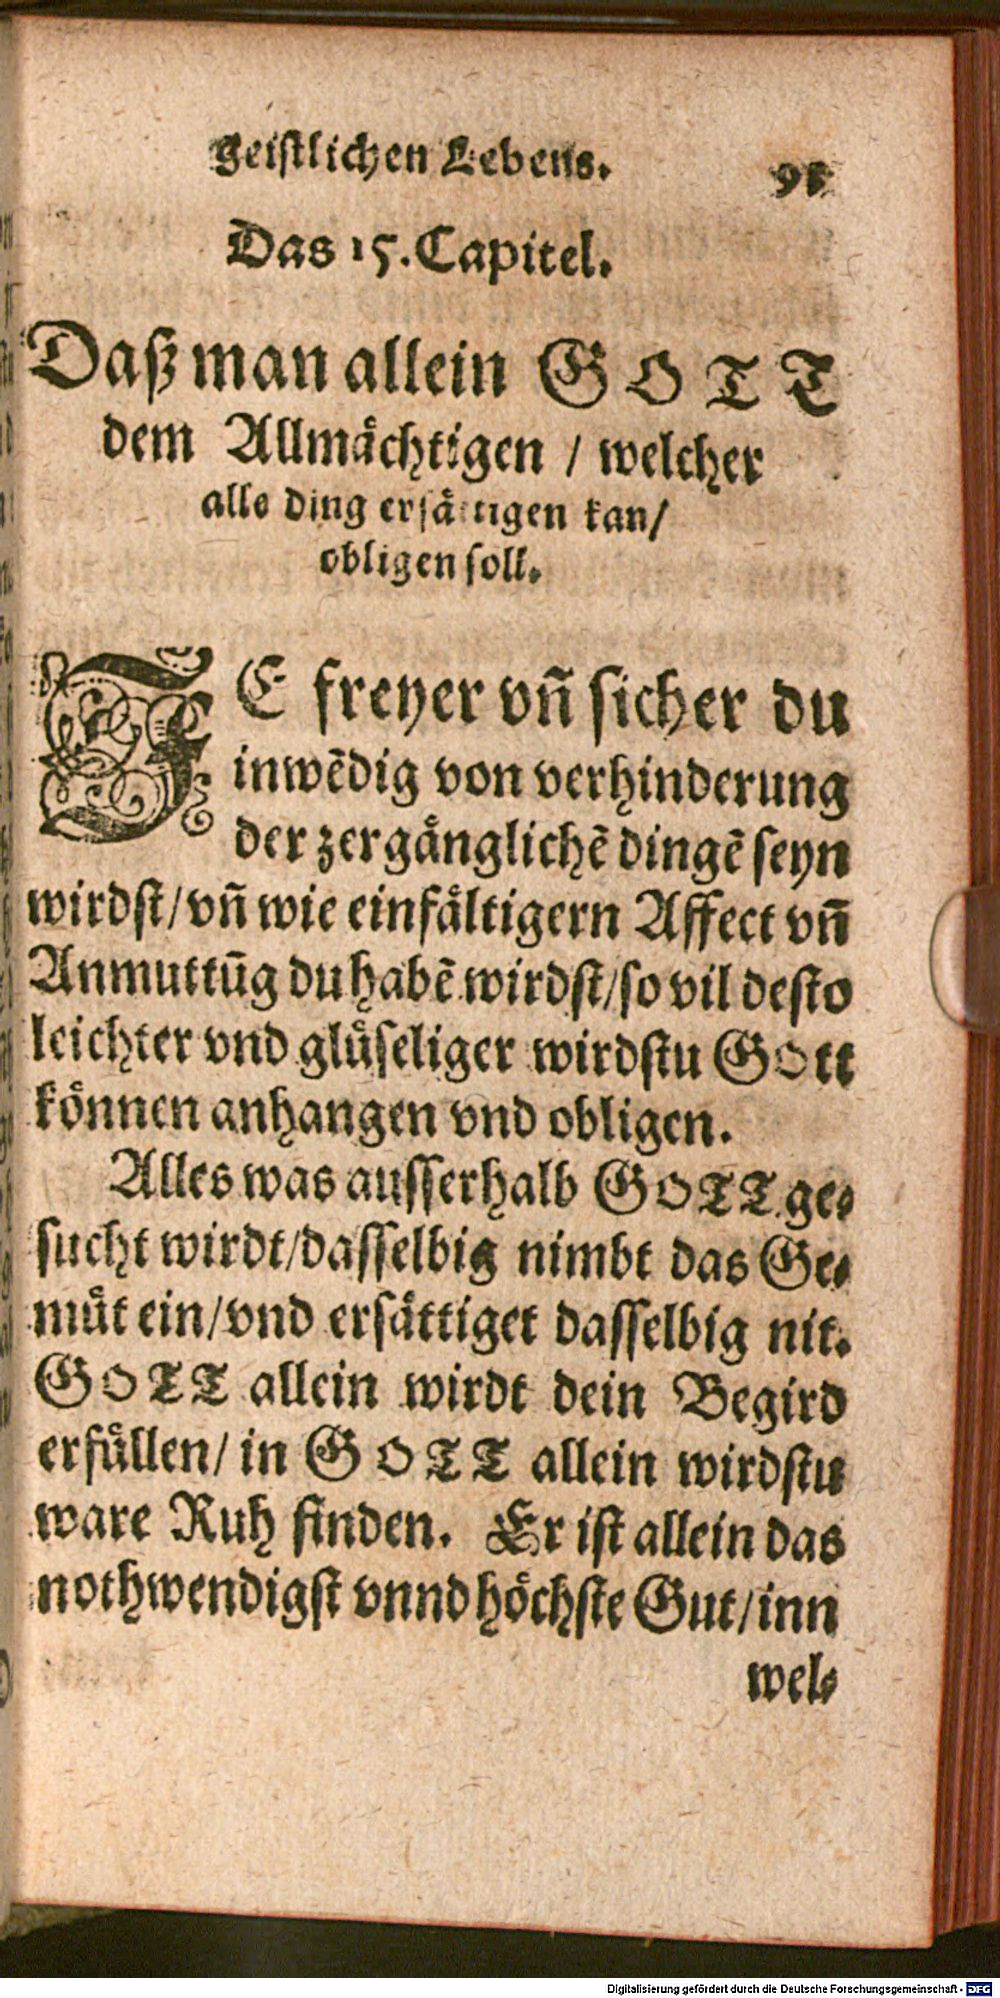 geistlichen Lebens. 91
Das 15. Capitel.
Daß man allein GOTT
dem Allmächtigen / welcher
alle ding ersättigen kan/
obligen soll.
JE freyer vñ sicher du
inwẽdig von verhinderung
der zergänglichẽ dingẽ seyn
wirdst/vñ wie einfältigern Affect vñ
Anmuttũg du habẽ wirdst/so vil desto
leichter vnd glüseliger wirdstu GOtt
können anhangen vnd obligen.
Alles was ausserhalb GOTT ge-
sucht wirdt/dasselbig nimbt das Ge-
müt ein/vnd ersättiget dasselbig nit.
GOTT allein wirdt dein Begird
erfüllen/ in GOTT allein wirdstu
ware Ruh finden. Er ist allein das
nothwendigst vnnd höchste Gut/inn
wel-
Digitalisierung gefördert durch die Deutsche Forschungsgemeinschaft - DFG